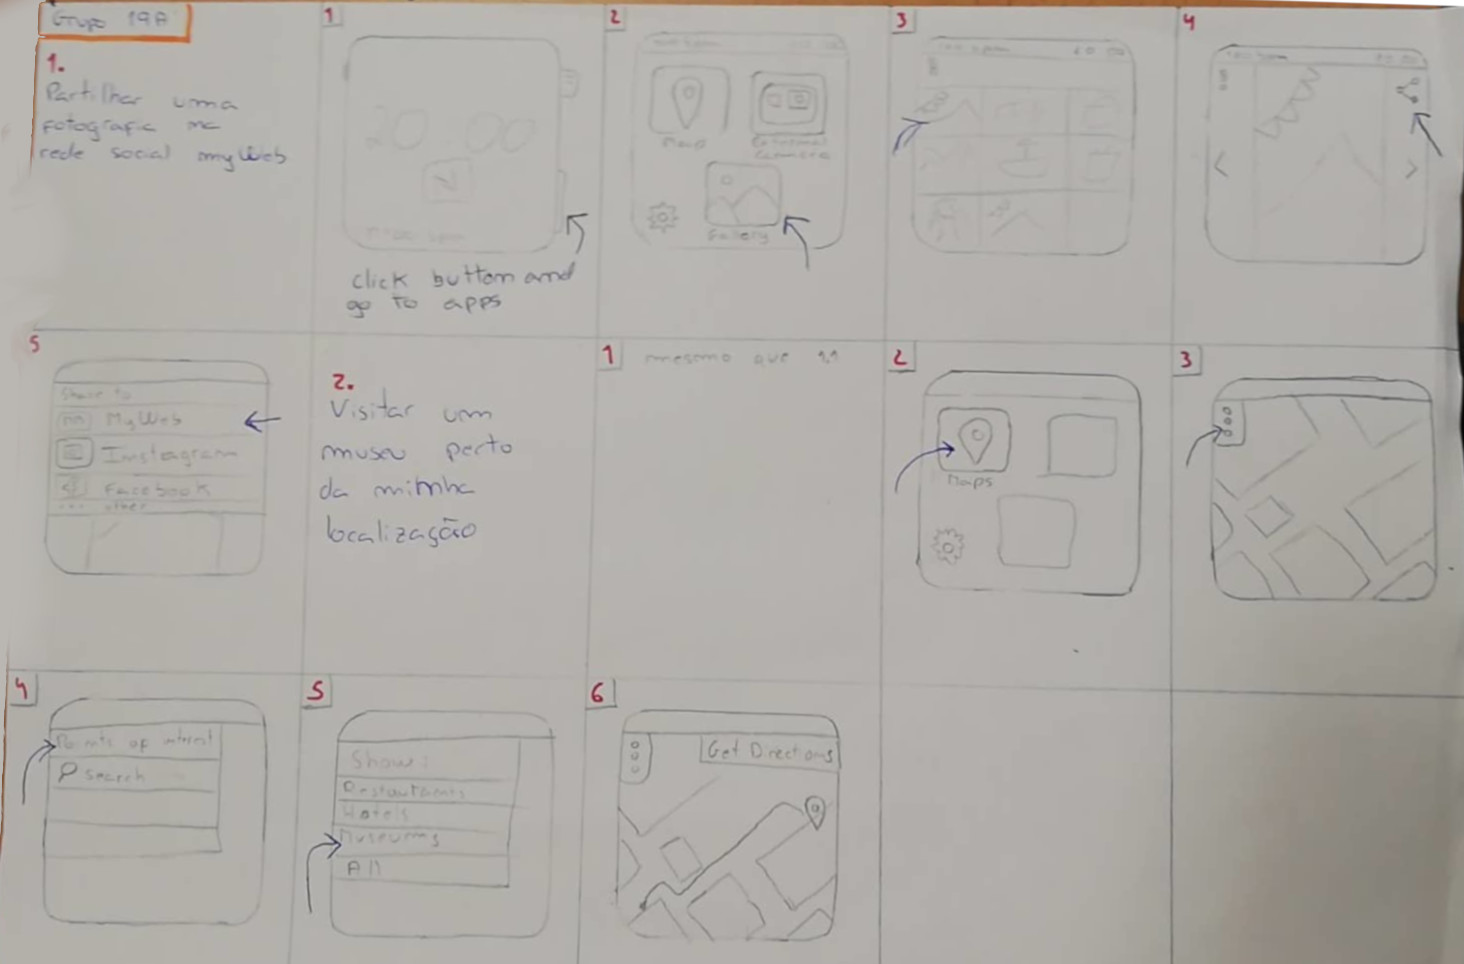 Grupo 19A
1.
Partilhar uma
fotografia na
rede social myWeb
1
20:00
click button and
go to apps
2
Map
External
Camera
Gallery
3
4
5
Share to
MyWeb
Instagram
Facebook
other
2.
Visitar um
museu perto
da minha
localização
1
mesmo que 1.1
2
Maps
3
4
Points of interest
search
5
Show:
Restaurants
Hotels
Museums
All
6
Get Directions